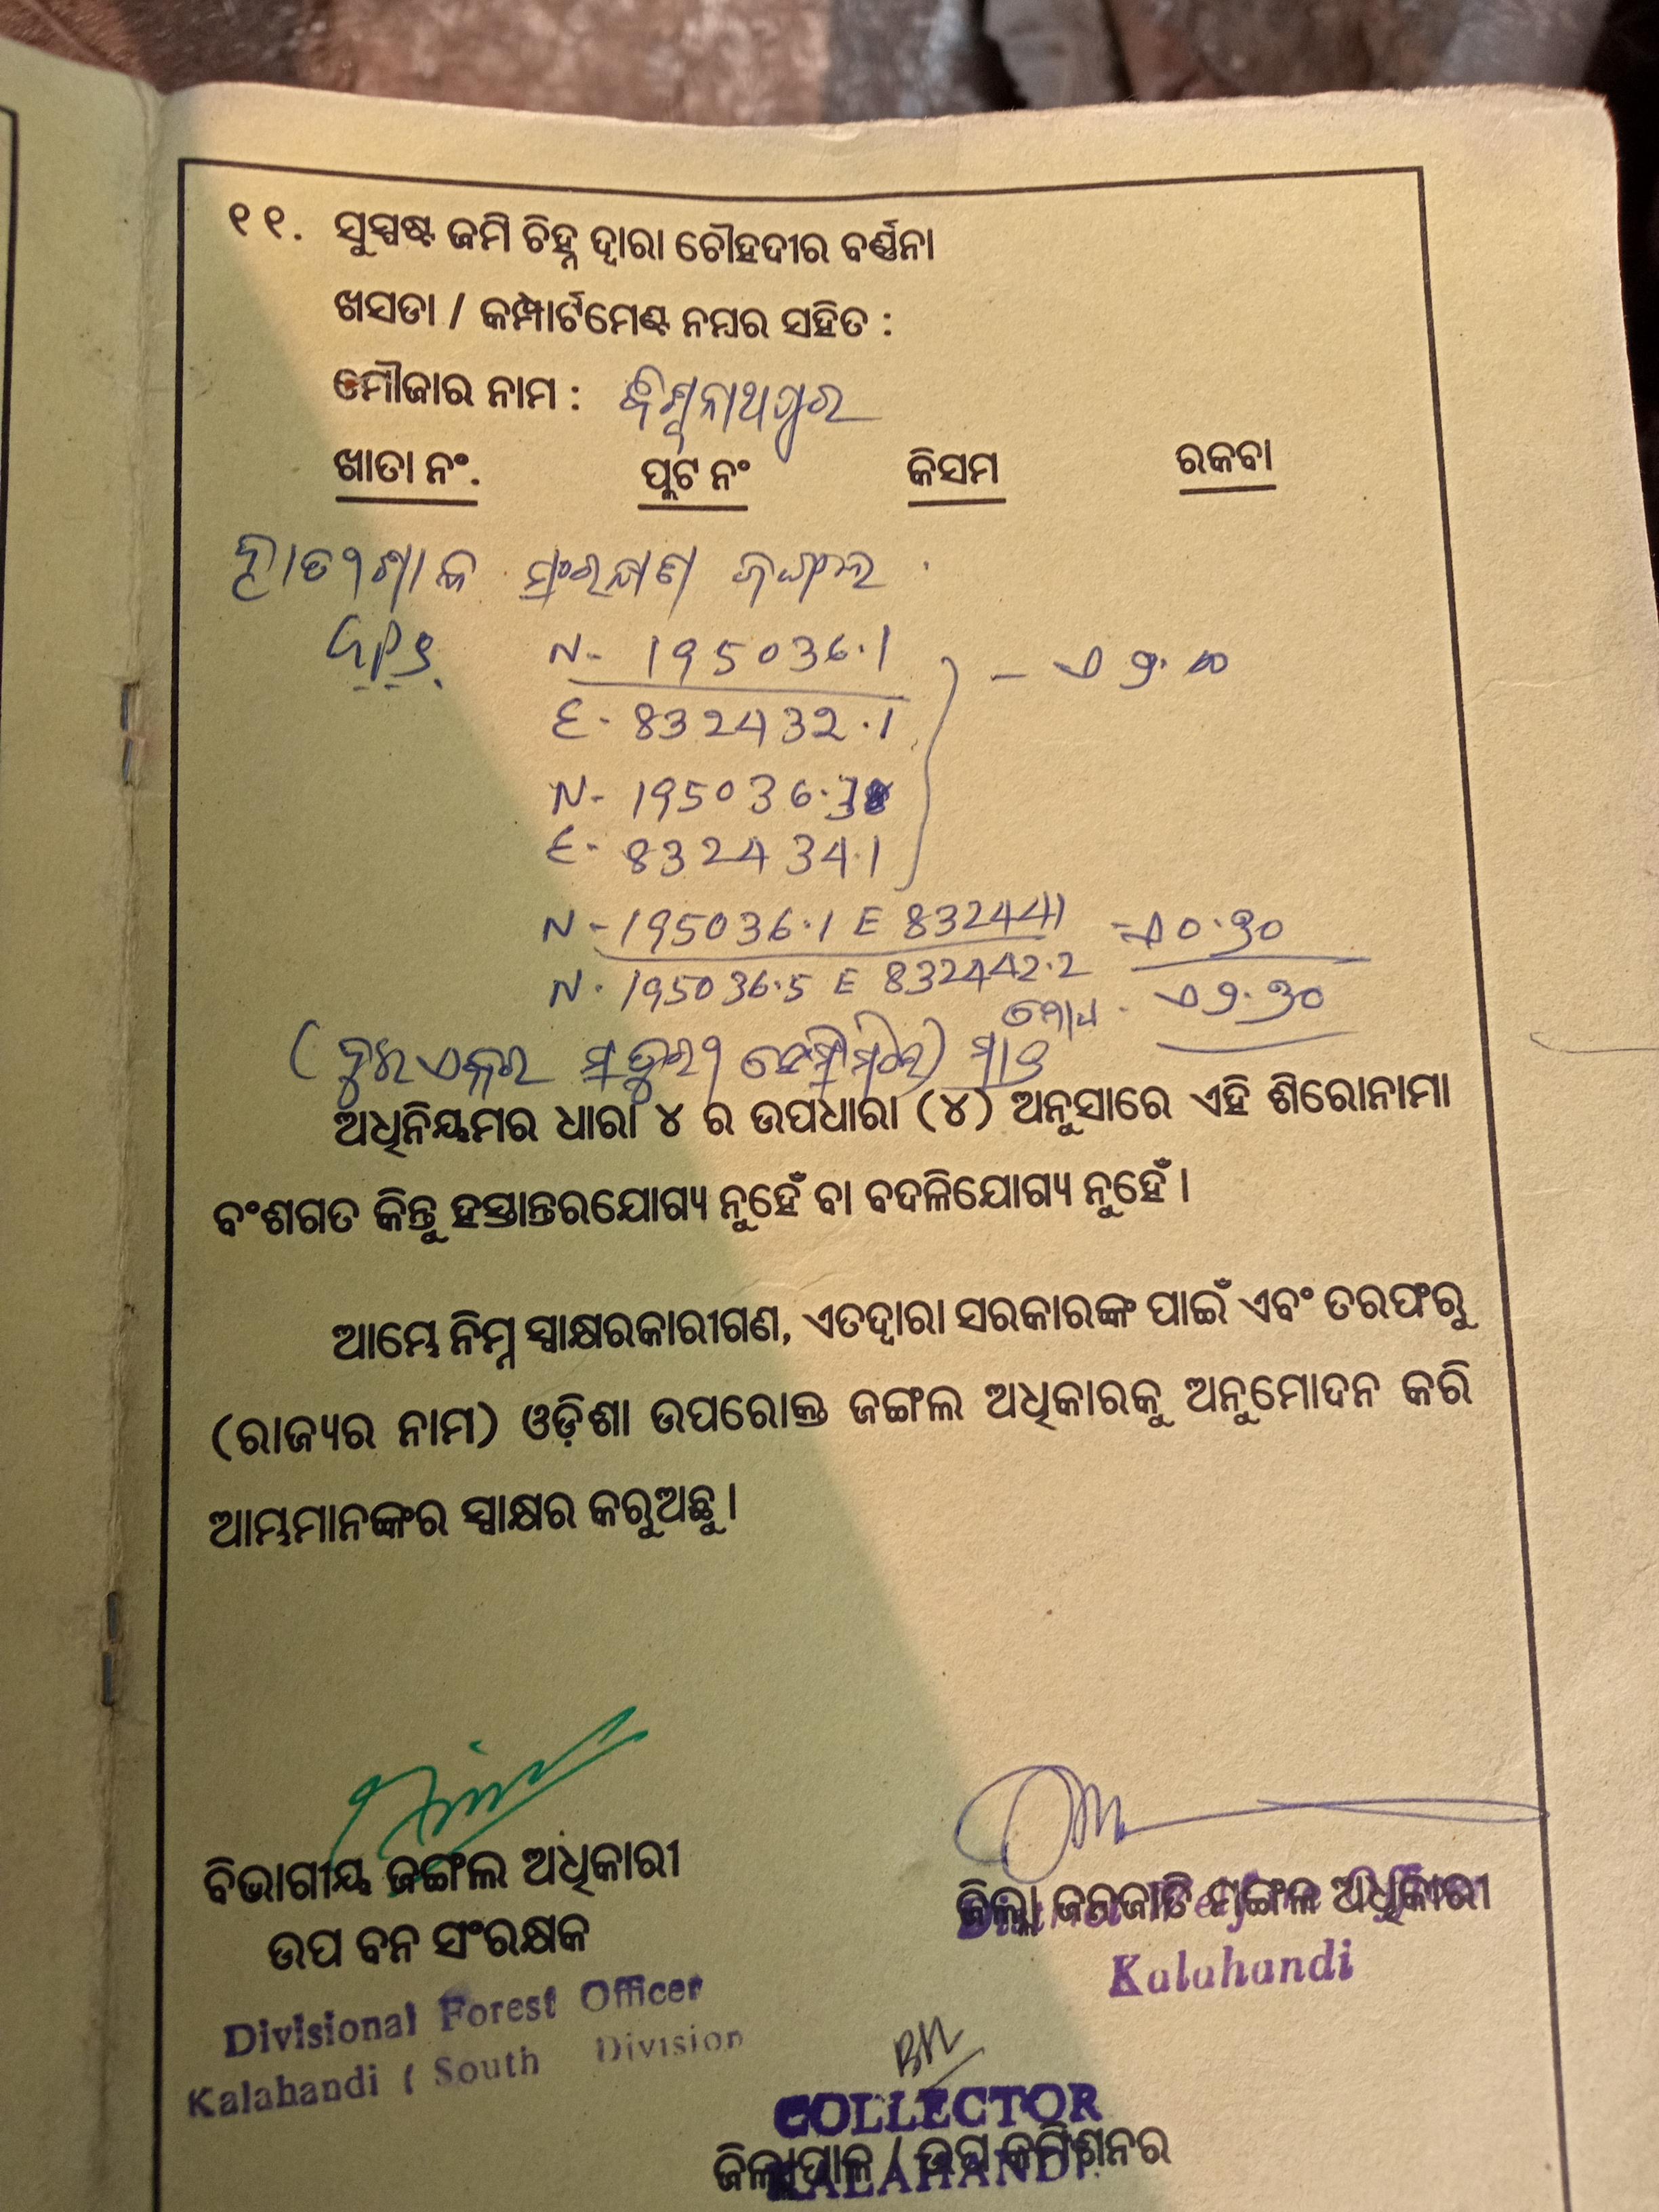 ୧୧. ସୁସ୍ପଷ୍ଟ ଜମି ଚିହ୍ନ ଦ୍ୱାରା ଚୌହଦୀର ବର୍ଣ୍ଣନା
ଖସଡା / କମ୍ପାର୍ଟମେଣ୍ଟ ନମ୍ବର ସହିତ :
ମୌଜାର ନାମ : ବିଶ୍ୱନାଥପୁର
ଖାତା ନଂ. ପ୍ଲଟ ନଂ କିସମ ରକବା
ସଂରକ୍ଷଣ ଜଙ୍ଗଲ
GPS N- 195036.1
E- 832432.1
N- 195036.3
E- 832434.1
N-195036.1 E 832441 ଏ ୦.୭୦
N. 195036.5 E 832442.2
ମୋଟ ଏ ୨.୭୦
(ଦୁଇ ଏକର ସତୁରୀ ଡେସିମିଲ) ମାତ୍ର
ଅଧିନିୟମର ଧାରା ୪ ର ଉପଧାରା (୪) ଅନୁସାରେ ଏହି ଶିରୋନାମା
ବଂଶଗତ କିନ୍ତୁ ହସ୍ତାନ୍ତରଯୋଗ୍ୟ ନୁହେଁ ବା ବଦଳିଯୋଗ୍ୟ ନୁହେଁ ।
ଆମ୍ଭେ ନିମ୍ନ ସ୍ୱାକ୍ଷରକାରୀଗଣ, ଏତଦ୍ୱାରା ସରକାରଙ୍କ ପାଇଁ ଏବଂ ତରଫରୁ
(ରାଜ୍ୟର ନାମ) ଓଡ଼ିଶା ଉପରୋକ୍ତ ଜଙ୍ଗଲ ଅଧିକାରକୁ ଅନୁମୋଦନ କରି
ଆମ୍ଭମାନଙ୍କର ସ୍ୱାକ୍ଷର କରୁଅଛୁ ।
ବିଭାଗୀୟ ଜଙ୍ଗଲ ଅଧିକାରୀ
ଉପ ବନ ସଂରକ୍ଷକ
Divisional Forest Officer
Kalahandi ( South Division
ଜିଲ୍ଲା ଜନଜାତି ମଙ୍ଗଳ ଅଧିକାରୀ
Kalahandi
COLLECTOR
ଜିଲ୍ଲାପାଳ / ଉପ କମିଶନର
KALAHANDI.